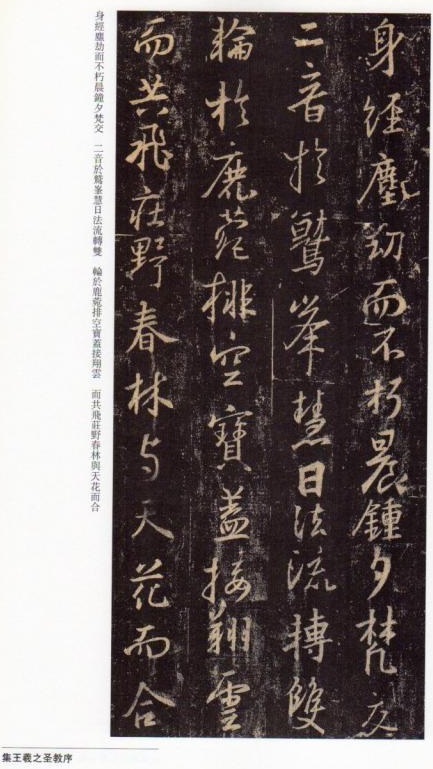 身經塵劫而不朽晨鍾夕梵交
二音於鷲峯慧日法流轉雙
輪於鹿菀排空寶蓋接翔雲
而共飛莊野春林与天花而合
身經塵劫而不朽晨鐘夕梵交　二音於鷲峯慧日法流轉雙　輪於鹿菀排空寶蓋接翔雲　而共飛莊野春林與天花而合
集王羲之圣教序